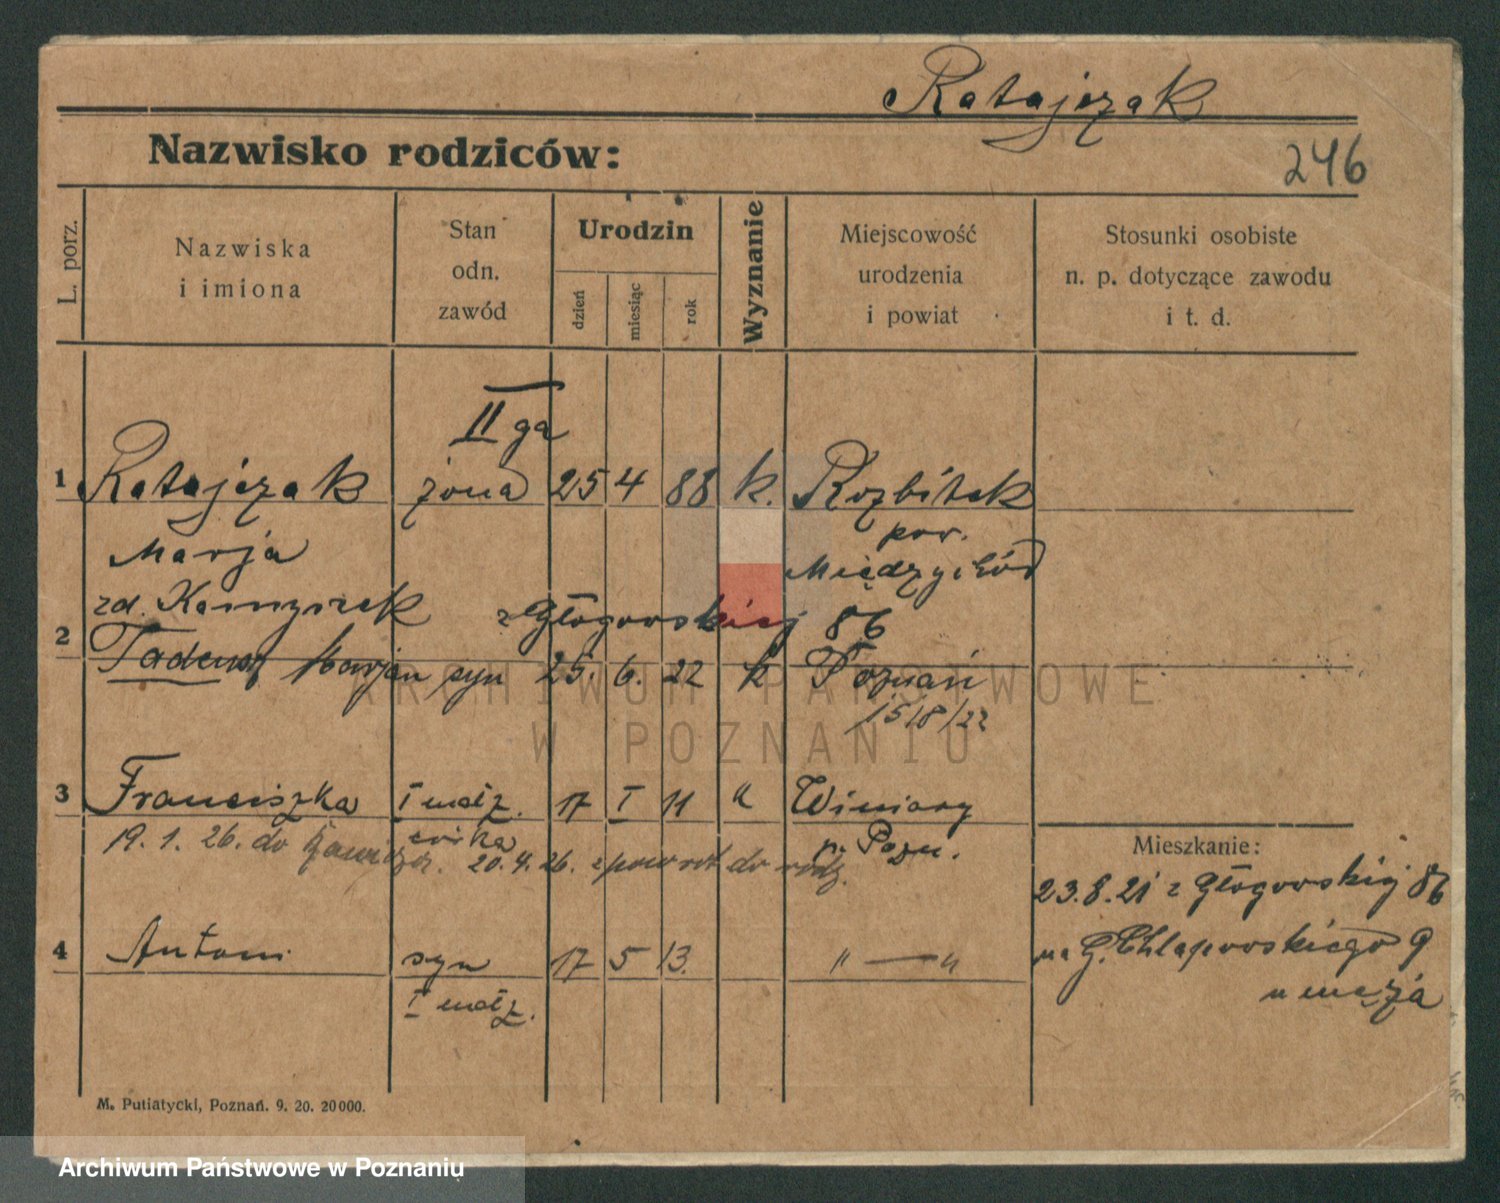 Ratajczak
Nazwisko rodziców:
246
L. porz.
Nazwiska
i imiona
Stan
odn.
zawód
Urodzin
dzień
miesiąc
rok
Wyznanie
Miejscowość
urodzenia
i powiat
Stosunki osobiste
n. p. dotyczące zawodu
i t. d.
II ga
1 Ratajczak żona 25 4 88 k. Rozbitek
Marja pow.
Międzychód
zd. Kamyszek z Głogowskiej 86
2 Tadeusz Marjan syn 25. 6. 22 k Poznań
15/8/22
3 Franciszka I małż. 17 I 11 " Winiary
córka p. Pozn.
19. 1. 26. do 20. 4. 26. z powrot do rodz.
4 Antoni syn 17 5 13. " — "
I małż.
Mieszkanie:
23.8.21 z Głogowskiej 86
na G. Chłapowskiego 9
u męża
M. Putiatycki, Poznań. 9. 20. 20000.
ARCHIWUM PAŃSTWOWE
W POZNANIU
Archiwum Państwowe w Poznaniu